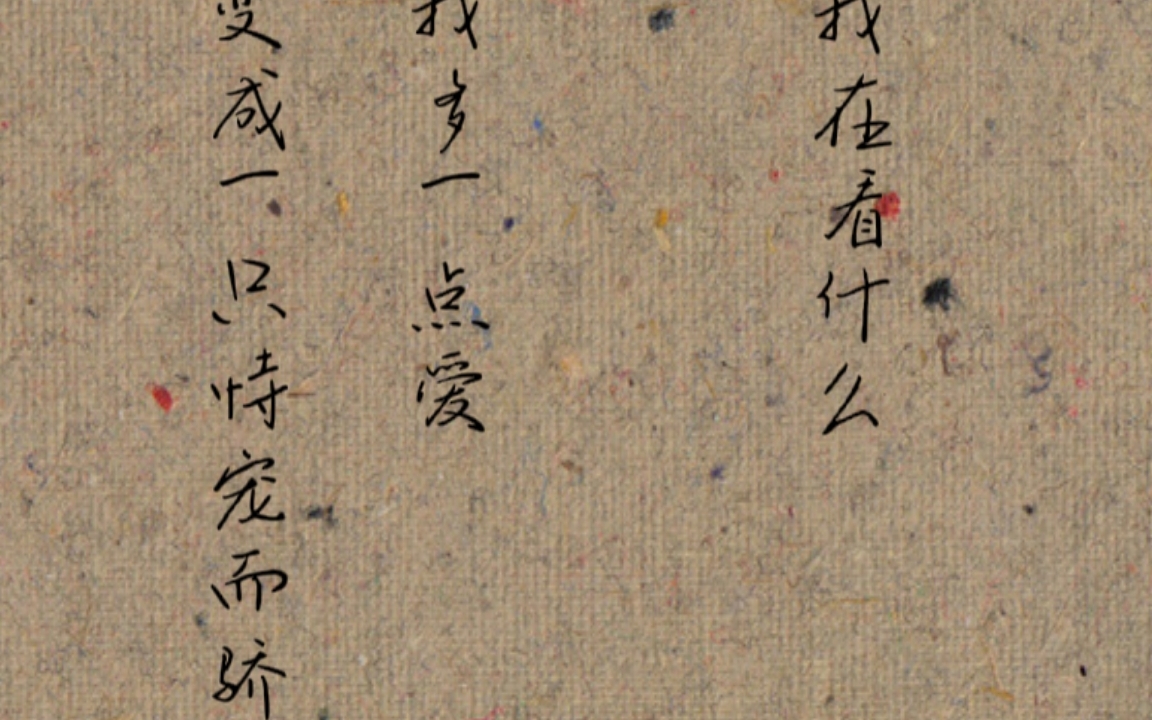 我在看什么
我多一点爱
变成一只恃宠而骄